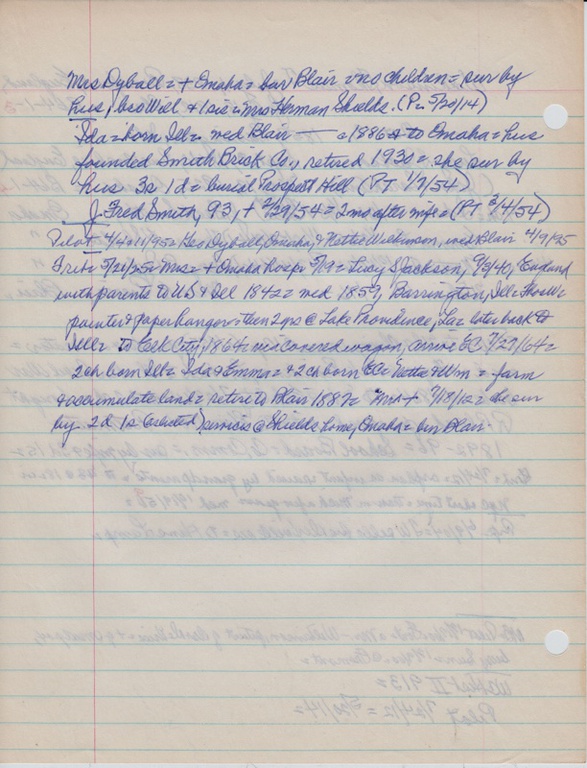 Mrs Dyball = + Omaha = bur Blair = no children = sur by
hus, bro Will & 1 sis = Mrs Herman Shields. (Pi. 5/20/14)
Ida = born Ill = med Blair — = 1886 to Omaha = hus
founded Smith Brick Co., retired 1930 = she sur by
hus 3s 1d = burial Prospect Hill (PT 1/7/54)
J. Fred Smith, 93, + 2/29/54 = 2 mo after wife = (PT 3/4/54)
Pilot = Geo Dyball, Omaha, & Nettie Wilkinson, med Blair 4/9/95
Trib = Mrs = + Omaha hosp 5/19 = Lucy Jackson, England
with parents to US & Ill 1842 = med 1859, Barrington, Ill =
painter & paper hanger = then 2 yrs @ Lake Providence, La = later back to
Ill = to Elk City, 1864 = via covered wagon, arrive EC 7/27/64 =
2 ch born Ill = Ida & Emma = & 2 ch born EC = Nettie & Wm = farm
& accumulate land = retire to Blair 1887 = = she sur
by 2d 1s services @ Shields home, Omaha = bur Blair.